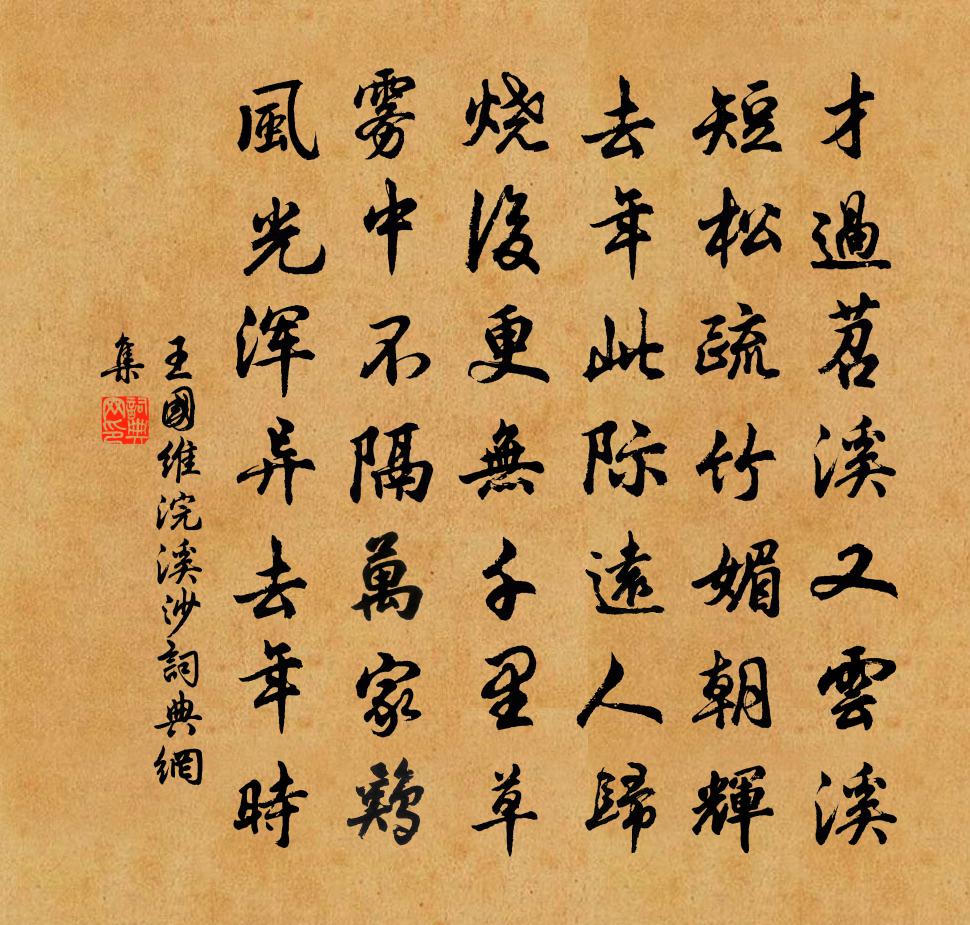 才過苕溪又雲溪
短松疏竹媚朝輝
去年此际遠人歸
烧後更無千里草
雾中不隔萬家鷄
風光浑异去年時
王國維浣溪沙詞典網
集
詞典网印